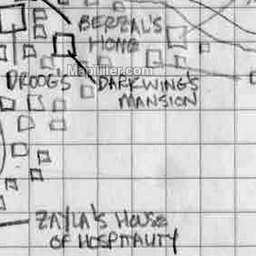 BERZAL'S
HOME
MapTiler.com
DROOGS
DARKWING'S
MANSION
ZAYLA'S HOUSE
OF HOSPITALITY